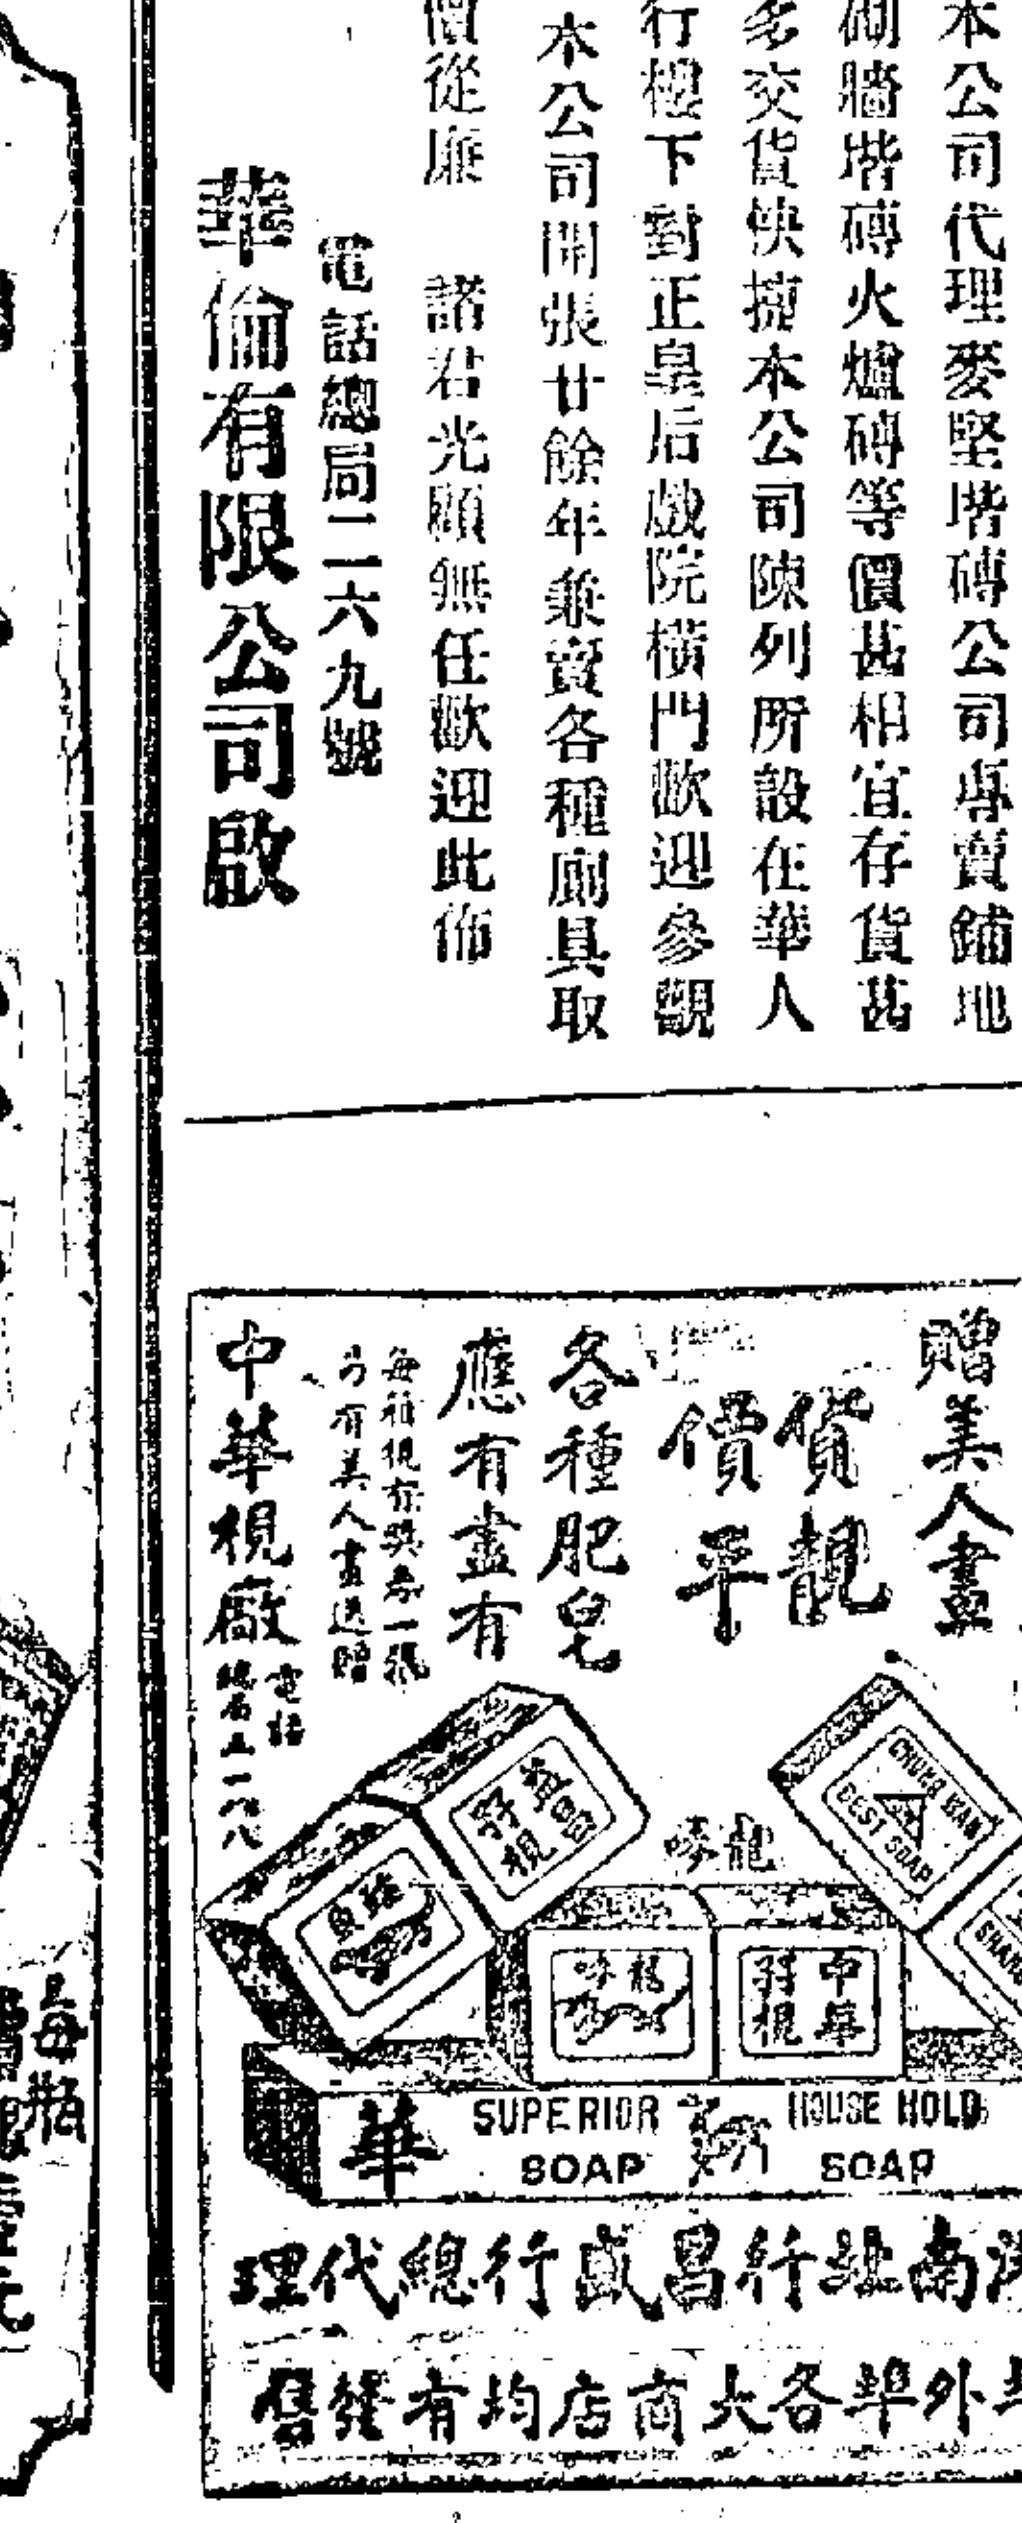 本公司代理麥堅堦磚公司專賣鋪地
砌牆堦磚火爐磚等價甚相宜存貨甚
多交貨快捷本公司陳列所設在華人
行樓下對正皇后戲院橫門歡迎參觀
本公司開張廿餘年兼賣各種廁具取
價從廉 諸君光顧無任歡迎此佈
電話總局二一六九號
華倫有限公司啟
贈美人畫
貨靚
價平
各種肥皂
應有盡有
每箱梘有獎券一張
另有美人畫送贈
中華梘廠
電話
總局五一八八
CHUNG WAH
BEST SOAP
龍呼
中華
孖梘
華
SUPERIOR
SOAP
HOUSE HOLD
SOAP
南北行昌盛行總代理
外埠各大商店均有發售
每瓶